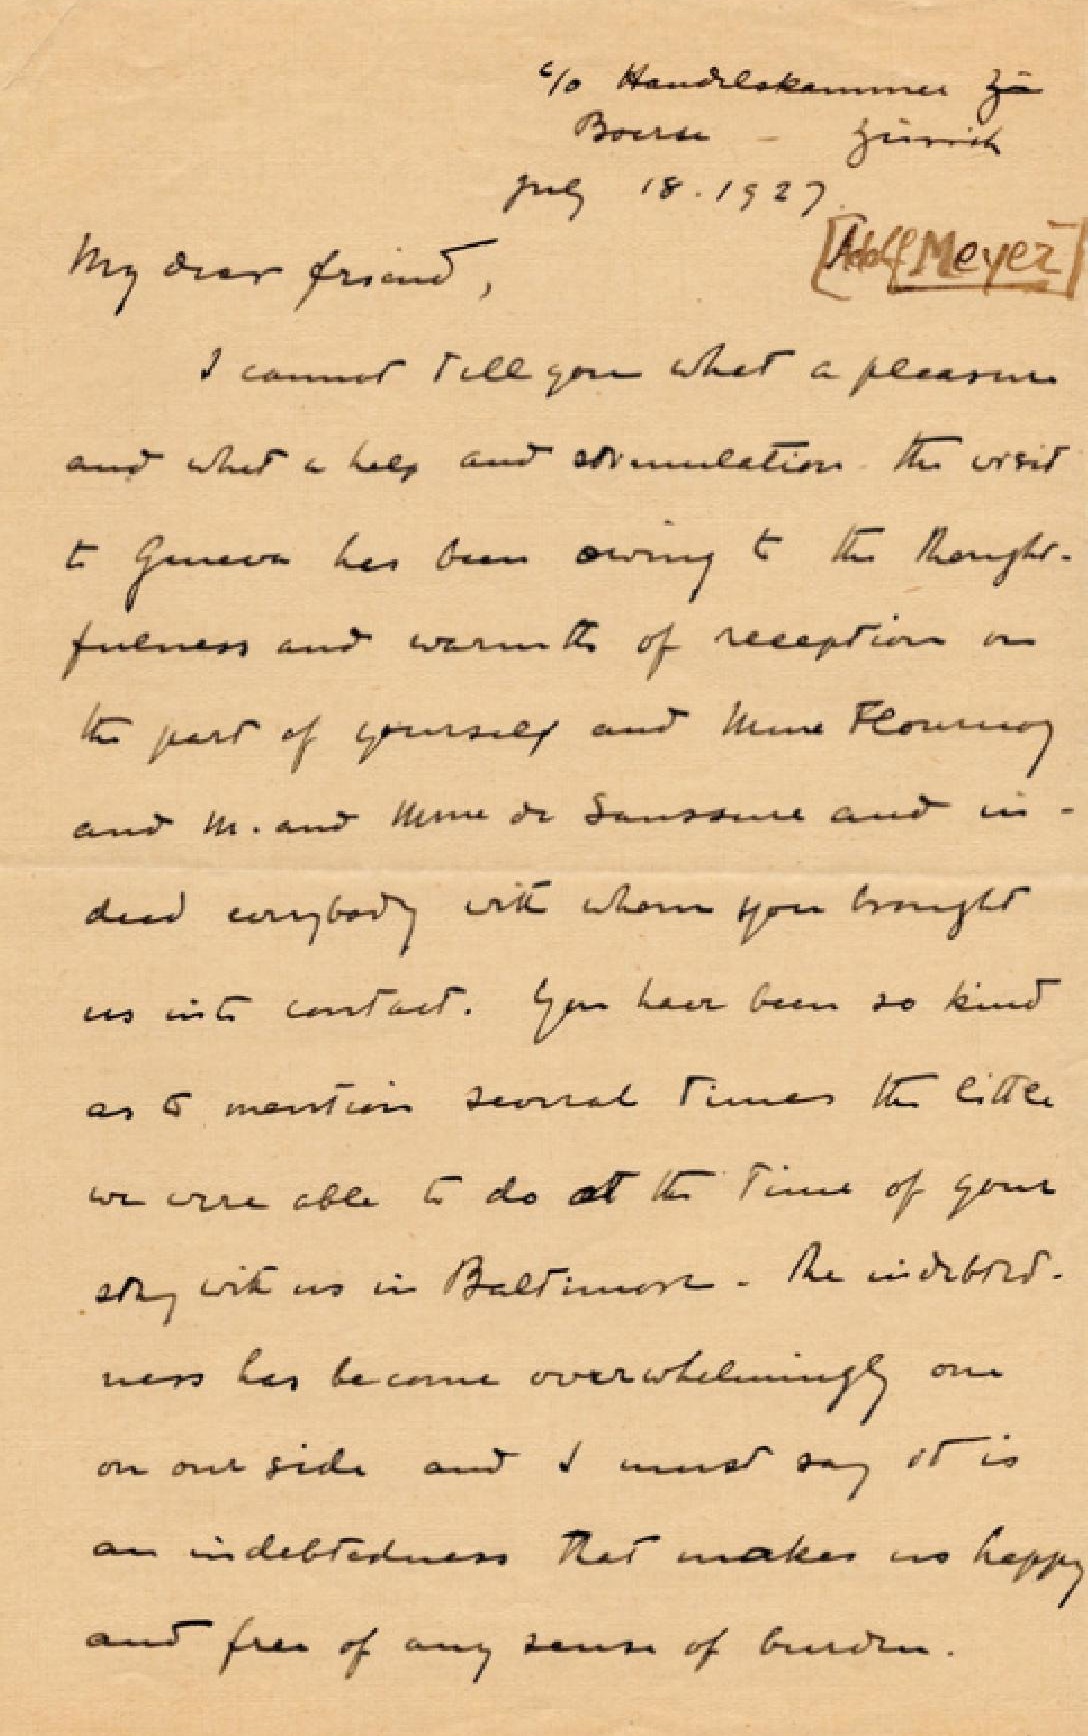 c/o Handelskammer Zü
Boerse - Zürich
July 18. 1927.
[Adolf Meyer]
My dear friend,
I cannot tell you what a pleasure
and what a help and stimulation the visit
to Geneva has been owing to the thought-
fulness and warmth of reception on
the part of yourself and Mme Flournoy
and M. and Mme de Saussure and in-
deed everybody with whom you brought
us into contact. You have been so kind
as to mention several times the little
we were able to do at the time of your
stay with us in Baltimore - The indebted-
ness has become overwhelmingly one
on our side and I must say it is
an indebtedness that makes us happy
and free of any sense of burden.